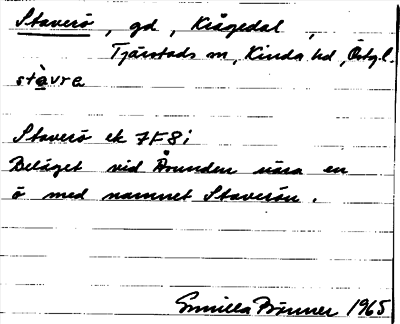 Staverö, gd, Krågedal,
Tjärstads sn, Kinda hd, Östgl.
stàvrɐ
Staverö ek 7F8i
Beläget vid Åsunden nära en
ö med namnet Staverön.
Gunilla Brönner 1965